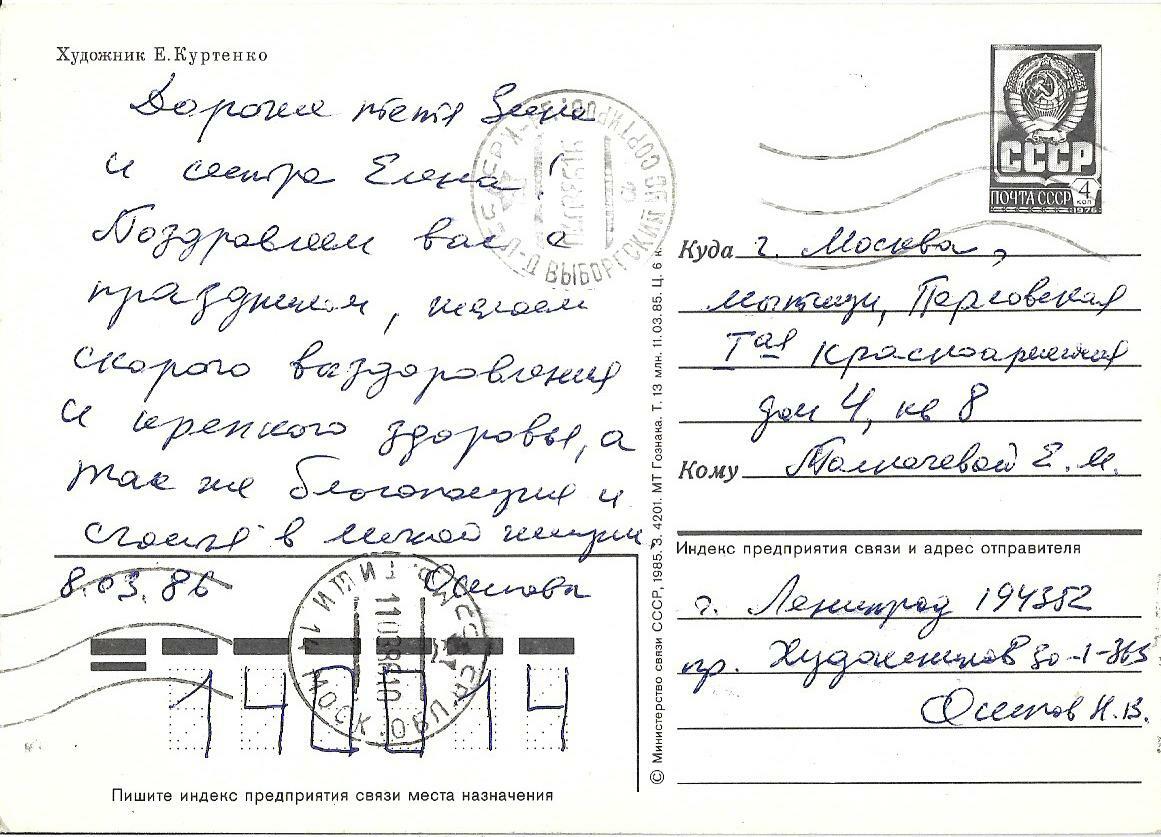 Художник Е. Куртенко
Дорогие тетя Зина
и сестра Елена!
Поздравляем вас с
праздником, желаем
скорого выздоровления
и крепкого здоровья, а
так же благополучия и
счастья в личной жизни
8.03.86 Осипова
140014
Пишите индекс предприятия связи места назначения
СССР
ПОЧТА СССР 4 коп
1976
Куда г. Москва,
мытищи, Перловская
1ая Красноармейская
дом 4, кв 8
Кому Толмачевой Е. И.
Индекс предприятия связи и адрес отправителя
г. Ленинград 194352
пр. Художников 30-1-363
Осипов Н.В.
© Министерство связи СССР, 1985. З. 4201. МТ Гознака. Т. 13 млн. 11.03.85. Ц. 6 к.
МЫТИЩИ 14 МОСК. ОБЛ.
ВЫБОРГСКИЙ